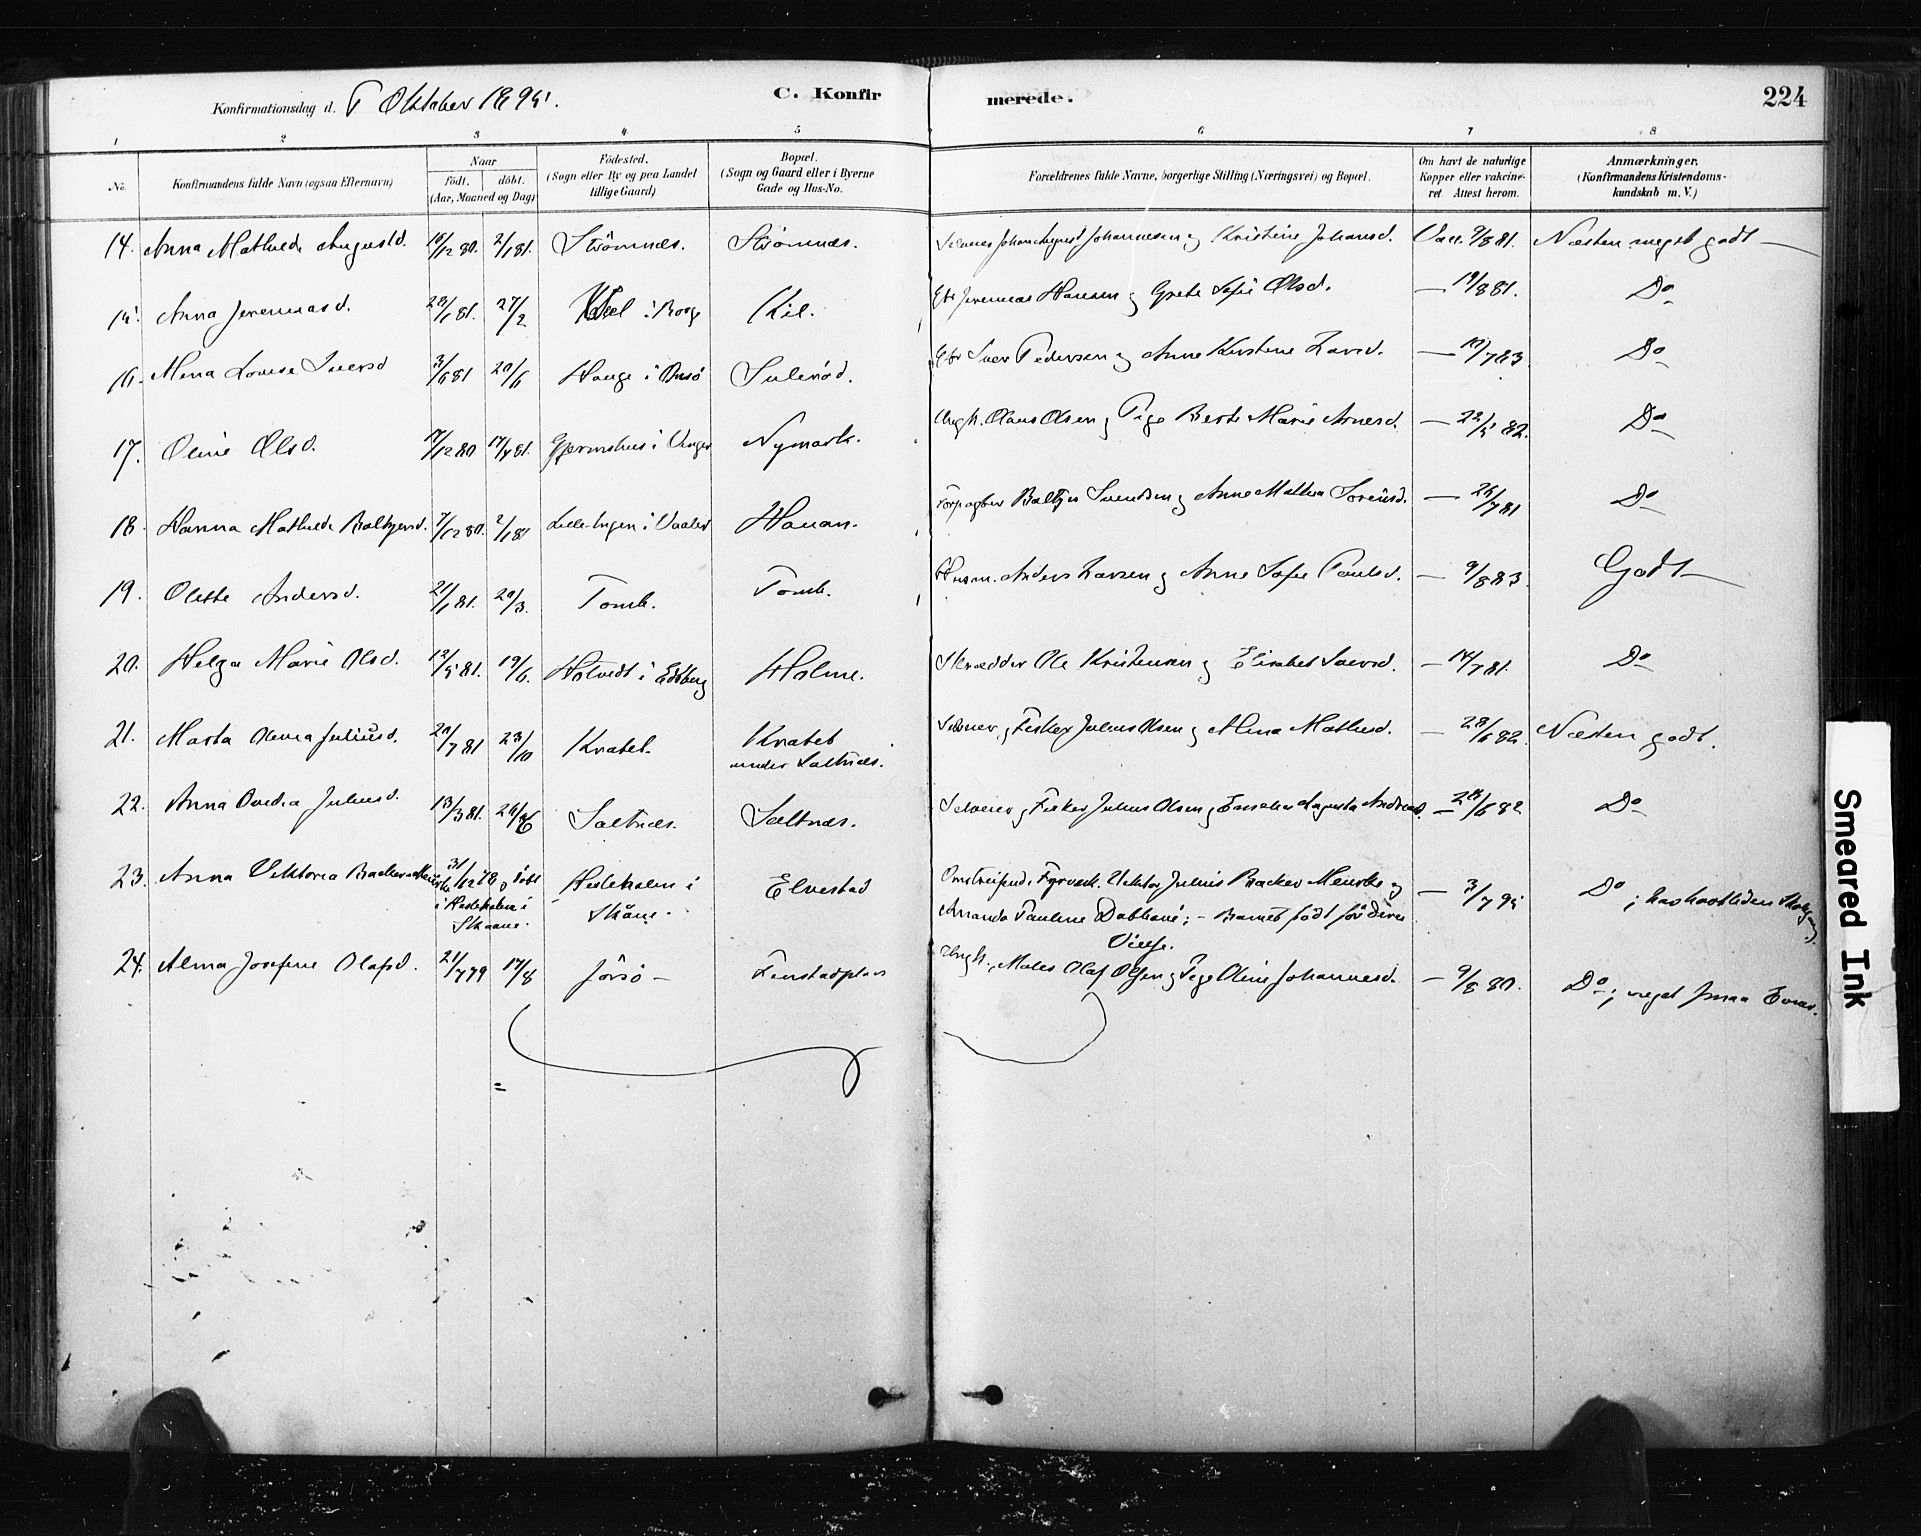 Konfirmationsdag d. Oktober 1895.
C. Konfirmerede.
224
1 2 3 4 5 6 7 8
No.
Konfirmandens fulde Navn (ogsaa Efternavn)
Naar
født. döbt.
(Aar, Maaned og Dag)
Födested.
(Sogn eller By og paa Landet
tillige Gaard)
Bopæl.
(Sogn og Gaard eller i Byerne
Gade og Hus-No.
Forældrenes fulde Navne, borgerlige Stilling (Næringsvei) og Bopæl.
Om havt de naturlige
Kopper eller vakcine-
ret Attest herom.
Anmærkninger.
(Konfirmandens Kristendoms-
kundskab m. V.)
14. Anna Mathilde Augustd. 2/1 81. Strömnæs. Strömnæs. Johan August Johannesen og Kristine Johansd. Vac. 9/8 81. Næsten meget godt
15. Anna Jeremiasd. 27/2 i Borge Kil. Jeremias Hansen og Grete Sofie Olsd. — 19/8 81. Do
16. Mina Lovise Iversd 3/6 81 Hauge i Onsö Sulerød. Iver Pedersen og Anne Kirstine Larsd. Do
17. Oline Olsd. Nymark. Ungk. Olaus Olsen og Pige Berte Marie Arnesd. — 22/5 82. Do
18. Hanna Mathilde Baltzersd. 7/12 80. 2/1 81 Hauan. Baltzer Svendsen og Anne Mathea Sörensd. — 26/7 81 Do
19. Olette Andersd. 21/1 81. 20/3. Tomb. Tomb. Husm. Anders Larsen og Anne Sofie Paulsd. — 9/8 83. Godt
20. Helga Marie Olsd. 12/5 81. 19/6. i Edsberg Holme. Skrædder Ole Kristensen og Elisabet Iversd. — 14/7 81. Do
21. Marta Olivia Juliusd. 23/10 Kratet. Kratet
under Saltnæs. Selveier og Fisker Julius Olsen og Mina Mathisd. — 28/6 82. Næsten godt.
22. Anna Ovidia Juliusd. 13/3 81. Saltnæs. Saltnæs. Selveier og Fisker Julius Olsen og Augusta Andreasd. — 28/6 82 Do
23. Anna Viktoria Backer 31/12 78, döbt
i Hesleholm i
Skaane. Hesleholm i
Skåne. Elvestad Omstreifende Fyrverk. Viktor Julius Backer og
Amanda Pauline — Barnet födt för deres
Vielse. — 3/7 95 Do; har havt liden Skolegang.
24. Alma Josefine Olafsd. 21/7 79 17/8 Jörsö — Ungk., Maler Olaf Olsen og Pige Oline Johannesd. — 9/8 80. Do; meget smaa Evner.
Smeared Ink